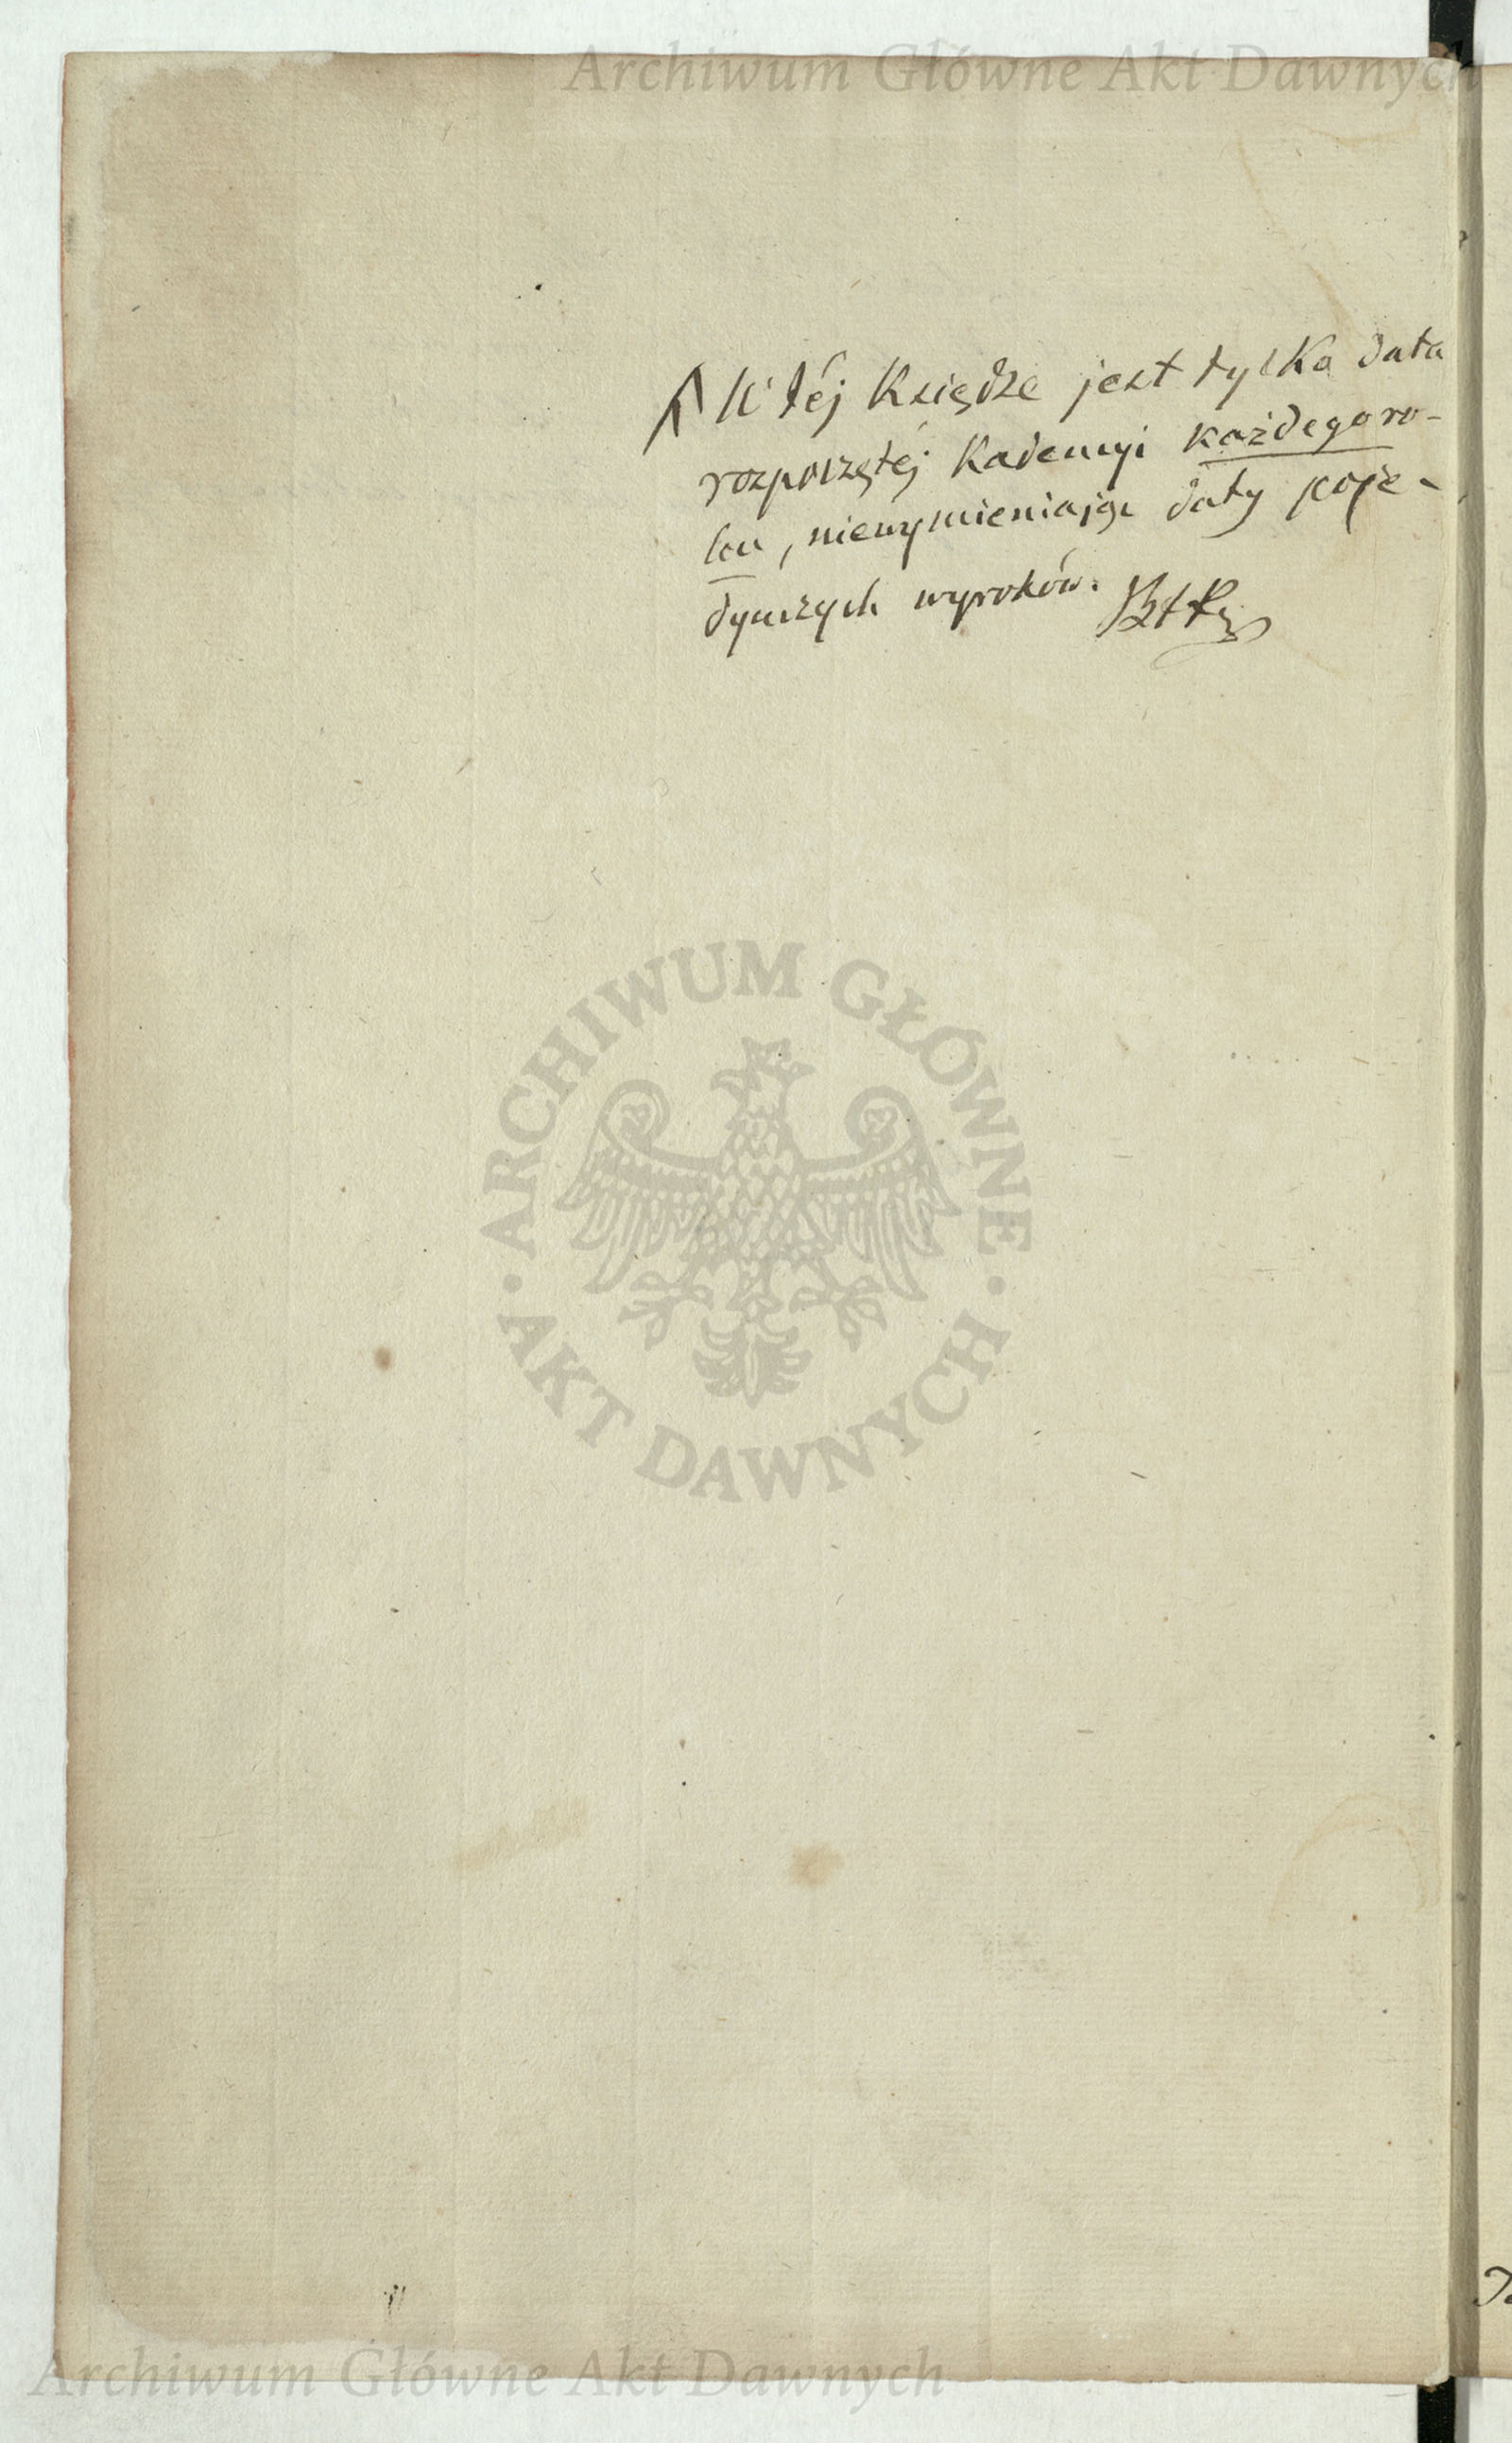 Archiwum Główne Akt Dawnych
W téj Księdze jest tylko data
rozpoczętéj Kadencyi każdego ro-
ku, niewymieniając daty poje-
dyńczych wyroków.
ARCHIWUM GŁÓWNE
AKT DAWNYCH
Archiwum Główne Akt Dawnych